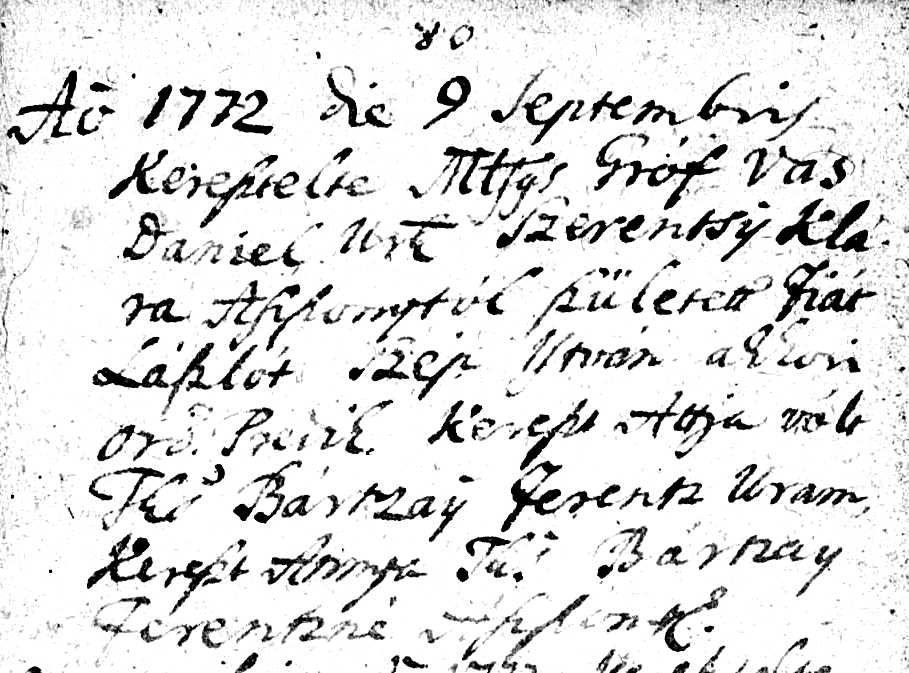 80
Aō 1772 die 9 Septembris
Kereßtelte Mltsgs Gróf Vas
Daniel Urk Szerentsÿ Klá-
ra Aßßonytól ßületett Fiát
Láßlót Szép István akkori
ord. Predik. Kereßt Attja vólt
Tks Bártzaÿ Ferentz Uram,
Kereßt Annya Tks Bártzay
Ferentzné Aßßonk.